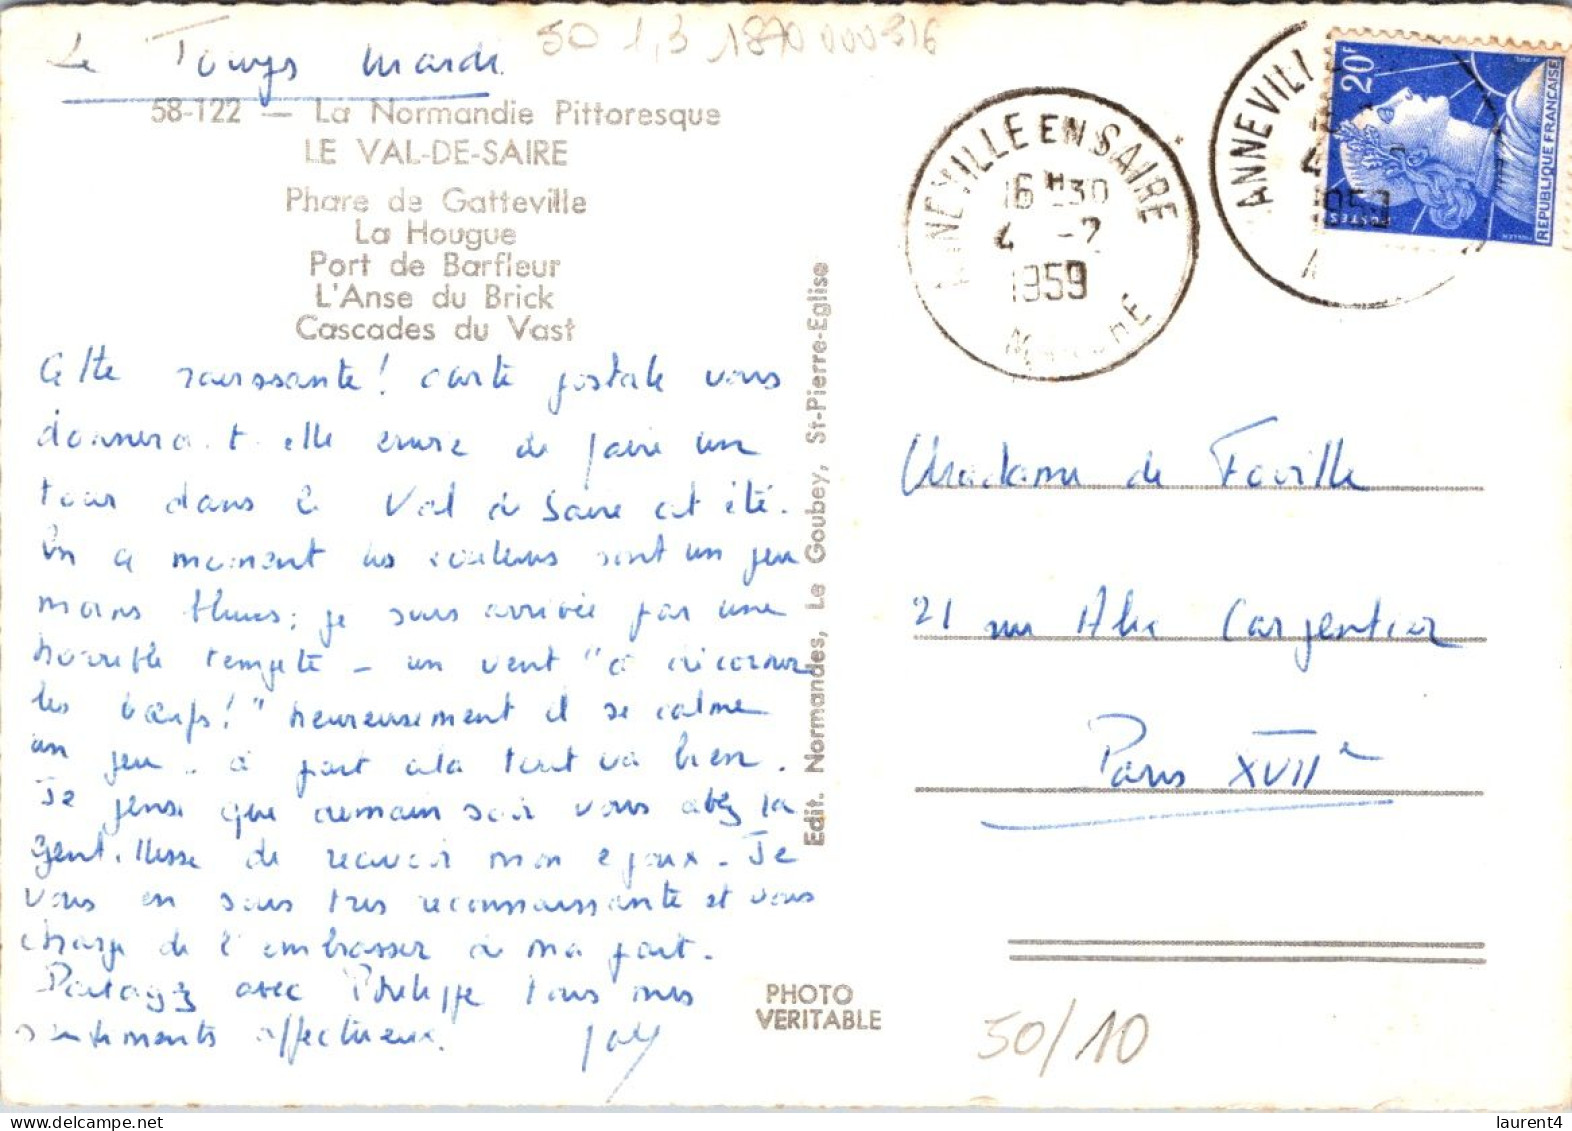 50 1,3 1870000316
Le Tourps mardi
58-122 — La Normandie Pittoresque
LE VAL-DE-SAIRE
Phare de Gatteville
La Hougue
Port de Barfleur
L'Anse du Brick
Cascades du Vast
Cette ravissante ! carte postale vous
donnera-t-elle envie de faire un
tour dans le Val de Saire cet été.
En ce moment les couleurs sont un peu
moins bleues ; je suis arrivée par une
horrible tempête - un vent "à décorner
les bœufs !" heureusement il se calme
un peu. à part cela tout va bien.
Je pense que demain soir vous avez la
gentillesse de recevoir mon époux. Je
vous en suis très reconnaissante et vous
charge de l'embrasser de ma part.
Partagez avec Philippe tous mes
sentiments affectueux.
Edit. Normandes, Le Goubey, St-Pierre-Eglise
PHOTO
VERITABLE
ANNEVILLE EN SAIRE
16 H 30
4 -2
1959
MANCHE
ANNEVILLE
4
1959
20F
POSTES
REPUBLIQUE FRANÇAISE
MULLER
Madame de Foville
21 rue Alice Carpentier
Paris XVIIe
50/10
laurent4